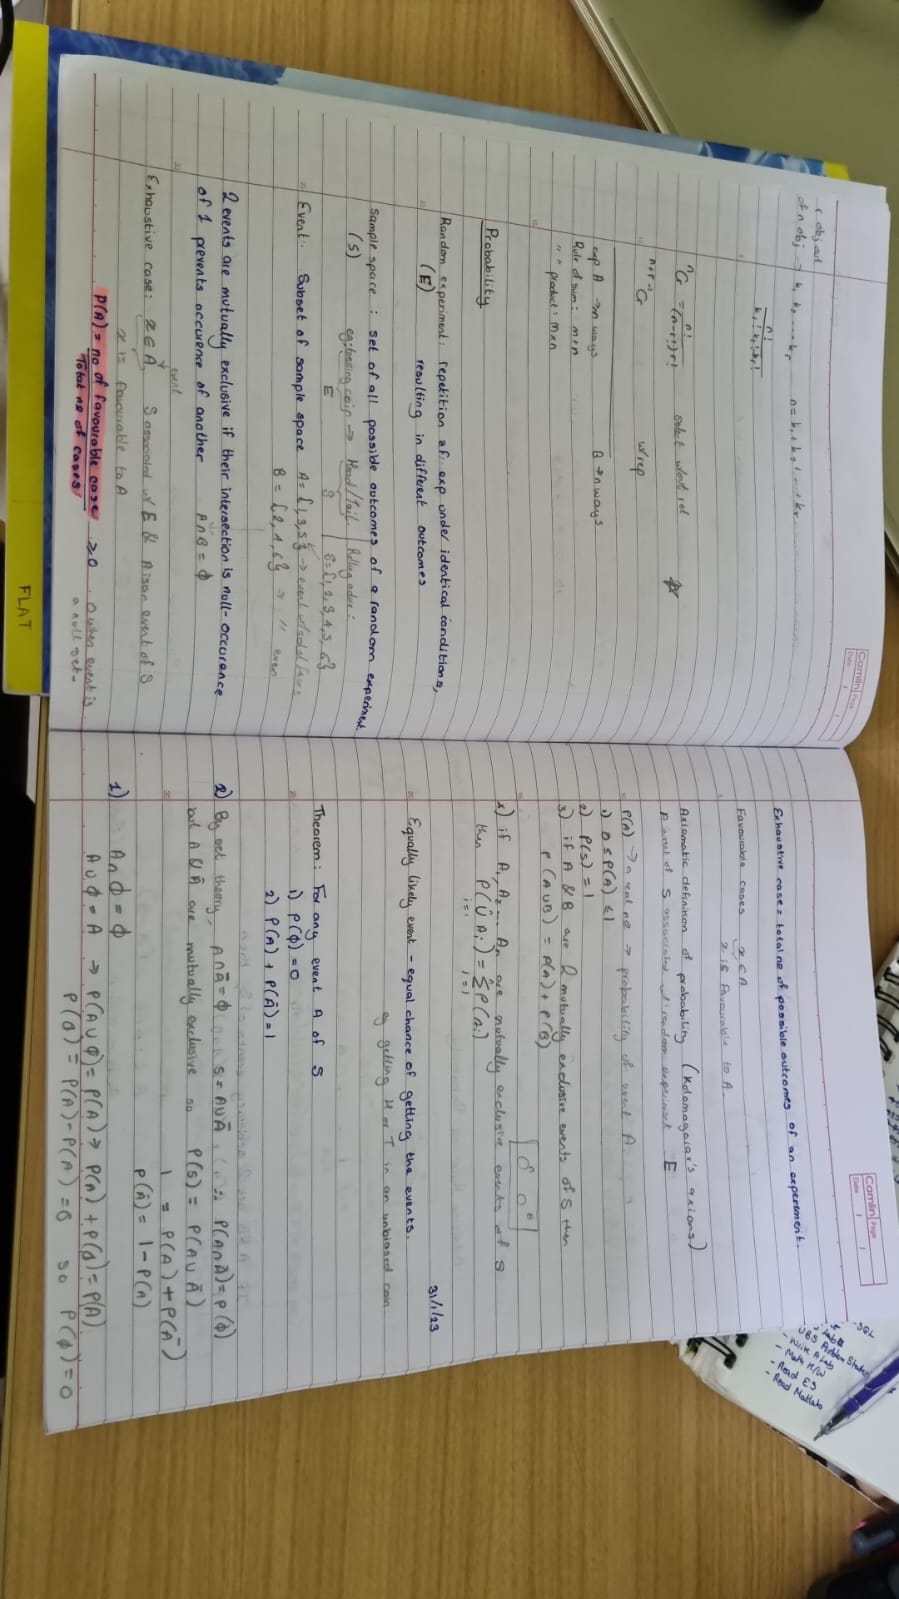 r obj out
of n obj → k₁ k₂ ..... kᵣ n = k₁ + k₂ + ... + kᵣ
n!
k₁! k₂! kᵣ!
ⁿCᵣ = n!
(n-r)! r!
select
n+r-1Cᵣ w rep
exp A → m ways B → n ways
Rule of sum: m+n
" " product: m×n
Probability
Random experiment: repetition of exp under identical conditions,
(E) resulting in different outcomes
Sample space : set of all possible outcomes of a random experiment
(S) eg: tossing coin → Head/Tail. Rolling a dice:
E S S={1,2,3,4,5,6}
Event: Subset of sample space A = {1,3,5} → event
B = {2,4,6} → " even
2 events are mutually exclusive if their intersection is null - occurence
of 1 prevents occurence of another A∩B = ϕ
event
Exhaustive case: x ∈ A, S associated w/ E & A is an event of S
x is favourable to A
P(A) = no of favourable case ≥ 0 0 when event is
Total no of cases a null set.
FLAT
Camlin Page
Date
Exhaustive case = total no of possible outcomes of an experiment.
Favourable cases x ∈ A
x is favourable to A.
Axiomatic definition of probability (Kolamagarar's axioms)
event of S associated random experiment E
P(A) → a real no → probability of event A
1) 0 ≤ P(A) ≤ 1
2) P(S) = 1
3) if A & B are 2 mutually exclusive events of S then
P(A∪B) = P(A) + P(B)
*) if A₁, A₂ .... Aₙ are mutually exclusive events of S
then P(∪ Aᵢ) = Σ P(Aᵢ)
31/1/23
Equally likely event - equal chance of getting the events.
eg getting H or T in an unbiased coin
Theorem: For any event A of S
1) P(ϕ) = 0
2) P(A) + P(Ā) = 1
2) By set theory, A∩Ā = ϕ S = A∪Ā P(A∩Ā) = P(ϕ)
but A & Ā are mutually exclusive so P(S) = P(A∪Ā)
1 = P(A) + P(Ā)
P(Ā) = 1 - P(A)
1) A∩ϕ = ϕ
A∪ϕ = A → P(A∪ϕ) = P(A) → P(A) + P(ϕ) = P(A)
P(ϕ) = P(A) - P(A) = 0 so P(ϕ) = 0
Camlin Page
Date
- SQL
Lab
UBS Problem State
- Write A Lab
- Math H/W
- Read ES
- Read Matlab